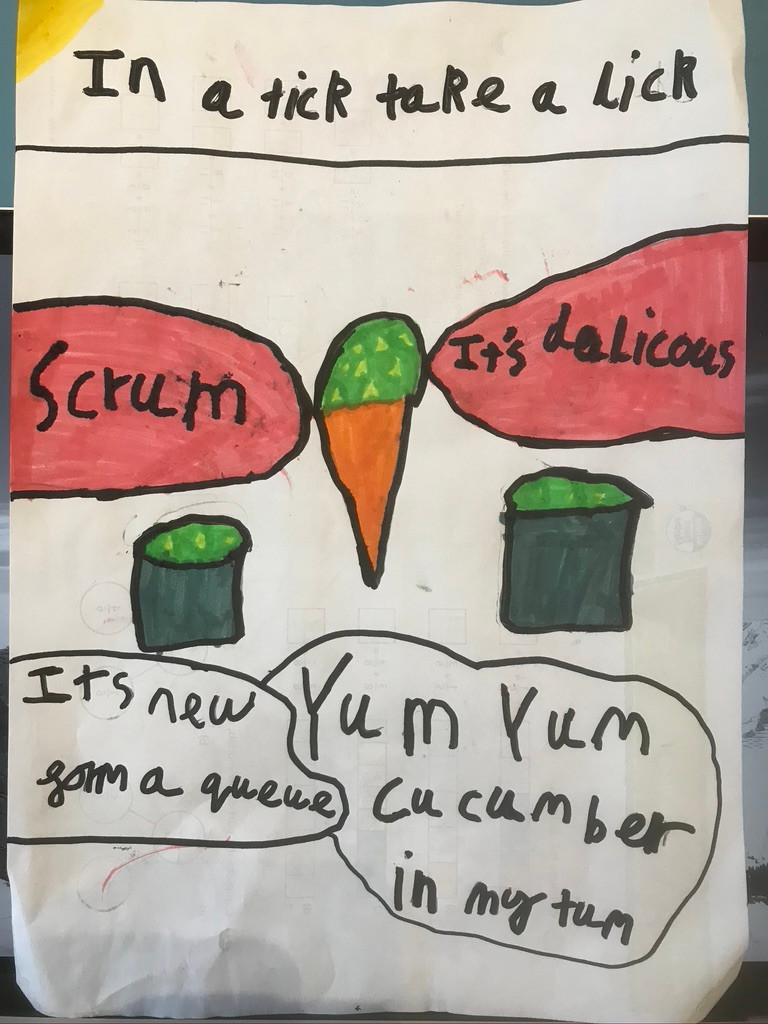 In a tick take a lick
Scrum
It's delicous
Its new
gonna a queue
Yum Yum
cucumber
in my tum